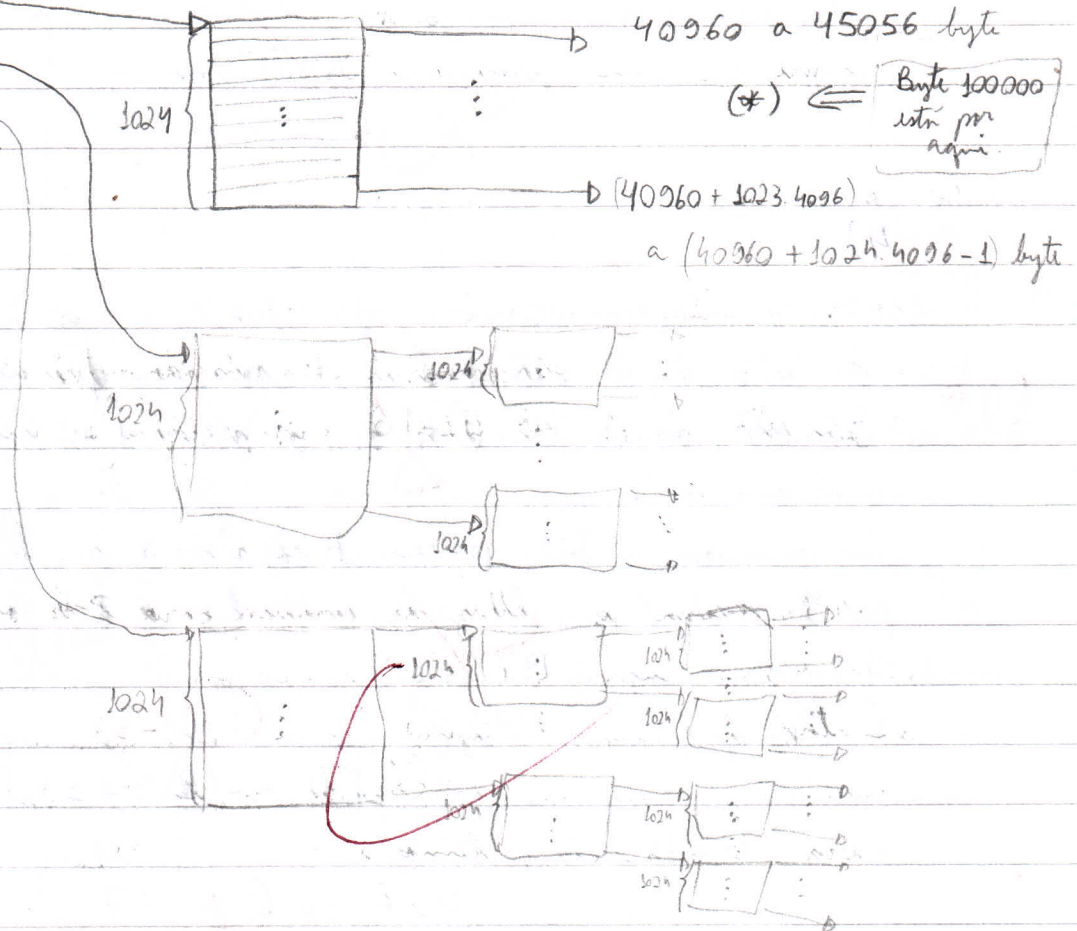 40960 a 45056 byte
(*) ⇐ Byte 100000
está por
aqui.
1024
(40960 + 1023.4096)
a (40960 + 1024.4096-1) byte
1024
1024
1024
1024
1024
1024
1024
1024
1024
1024